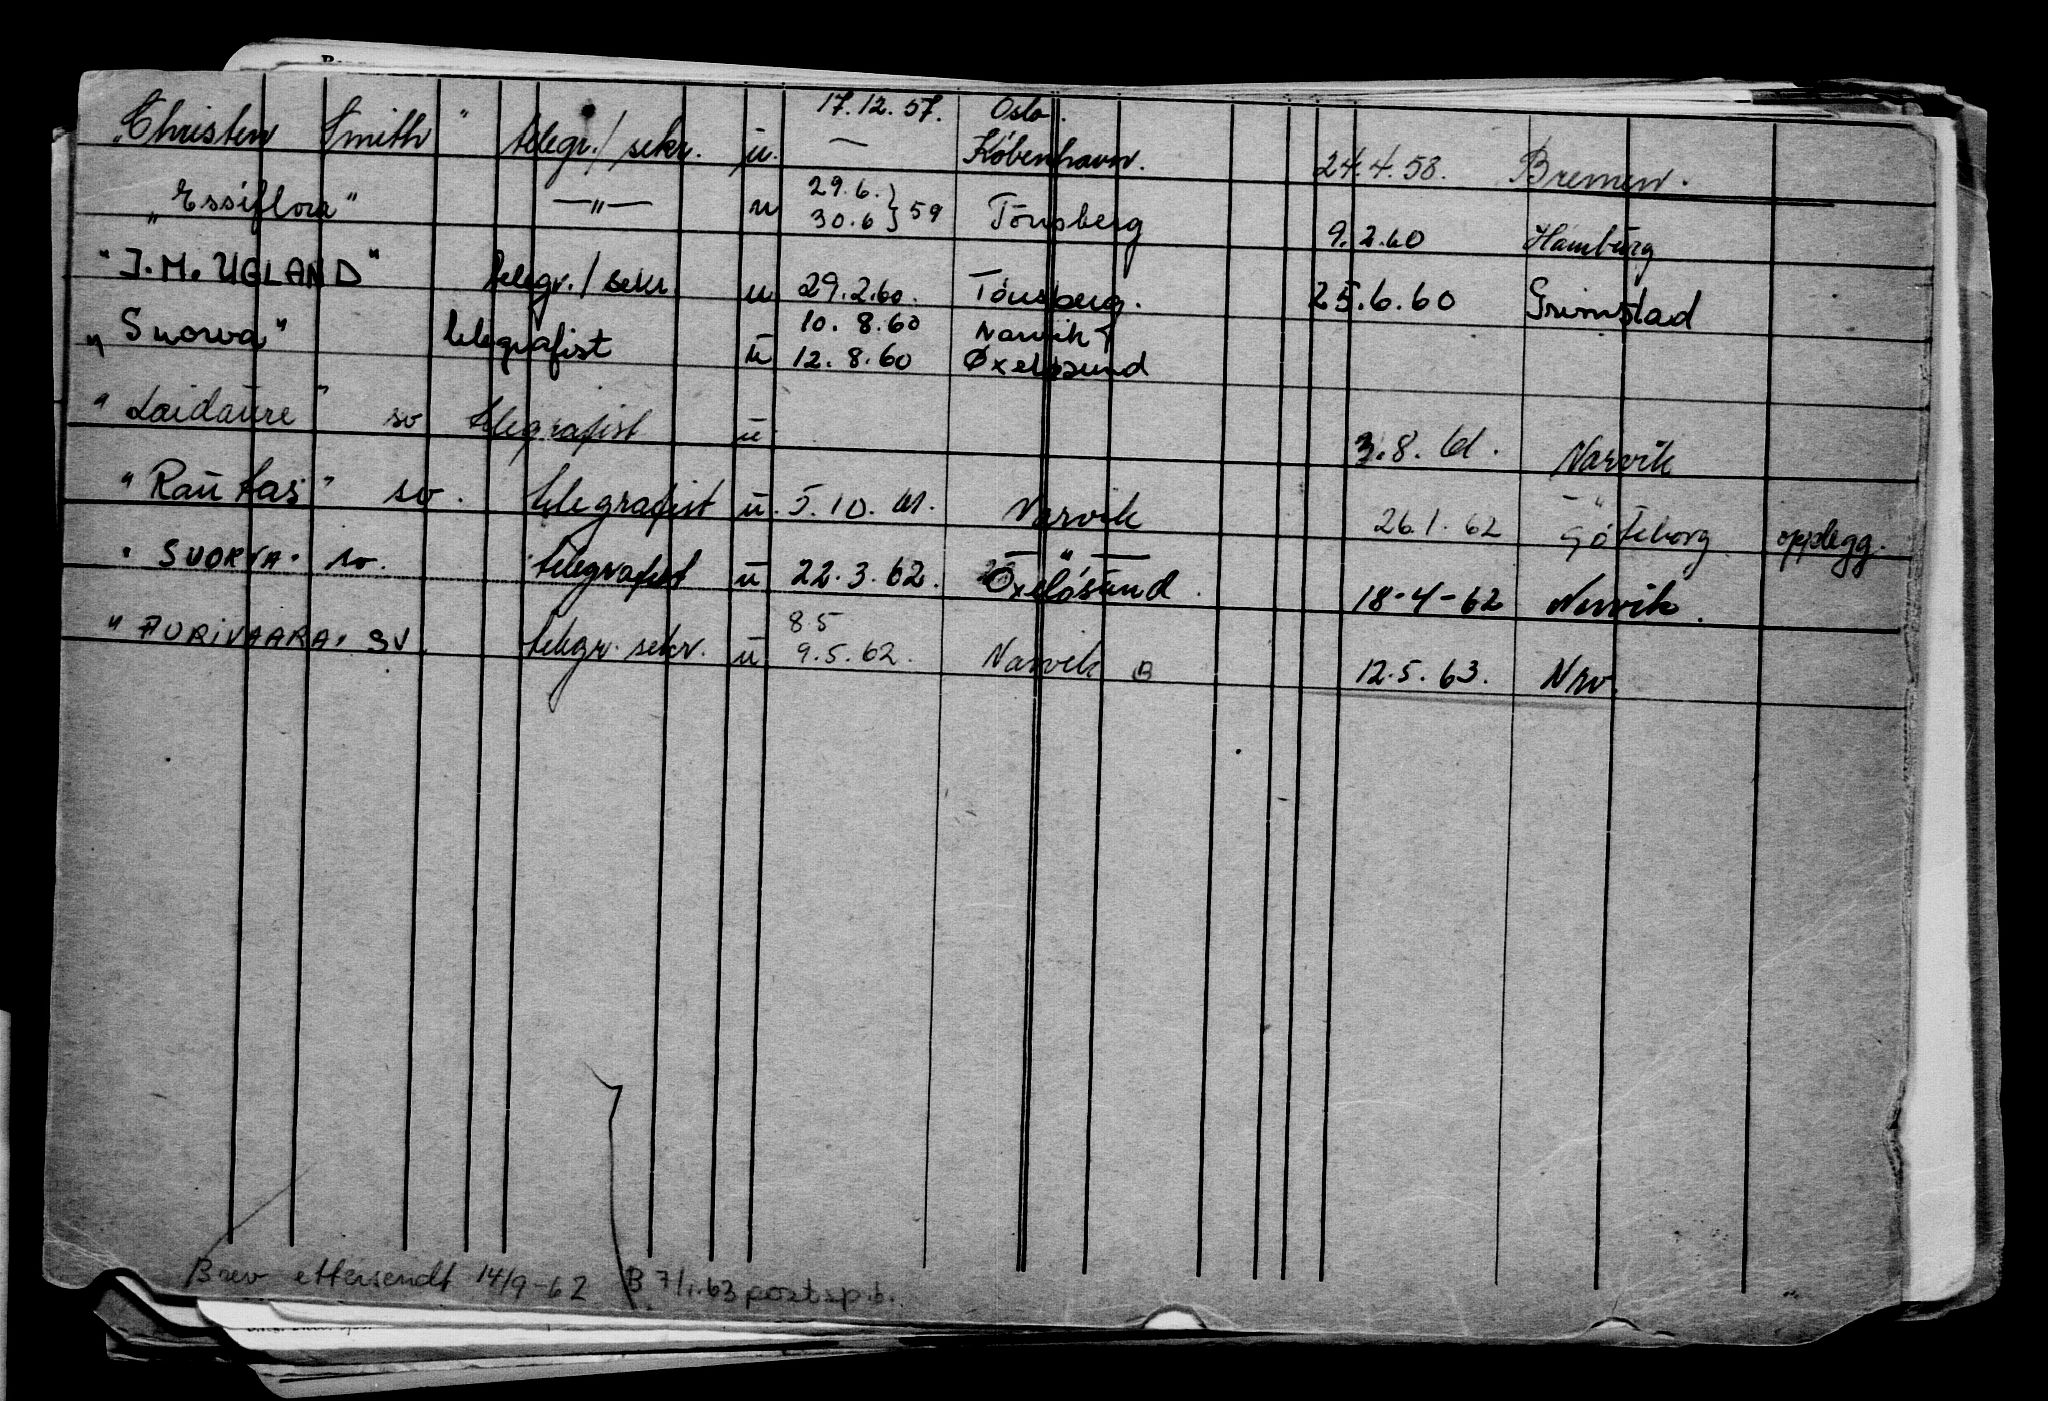 17.12.57. Oslo.
"Christen Smith" telegr./sekr. u. — København. 24.4.58. Bremen.
"Essiflora" —„— u 29.6. } 59 Tønsberg 9.2.60 Hamburg
30.6
"J.M. UGLAND" telegr./sekr. u 29.2.60. Tønsberg. 25.6.60 Grimstad
"Suorva" telegrafist u 10.8.60 Narvik
12.8.60 Øxeløsund
"Laidaure" sv telegrafist u 3.8.61. Narvik
"Rautas" sv. telegrafist u. 5.10.61. Narvik 26.1.62 Göteborg opplegg.
"SUORVA" sv. telegrafist u 22.3.62. Oxeløsund. 18-4-62 Narvik.
"AURIVAARA" SV. telegr. sekr. u 8 5
9.5.62. Narvik B 12.5.63. Nrv.
Brev ettersendt 14/9-62 B 7/1.63 postsp.b.